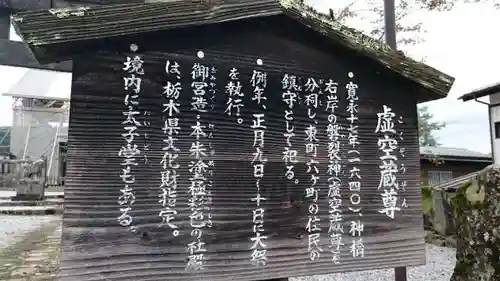 虚空蔵尊
・寛永十七年(一六四〇)、神橋
右岸の磐裂神(虚空蔵尊)を
分祠し、東町六ヶ町の住民の
鎮守として祀る。
・例年、正月九日〜十日に大祭
を執行。
・御宮造・本朱塗極彩色の社殿
は、栃木県文化財指定。
境内に太子堂もある。